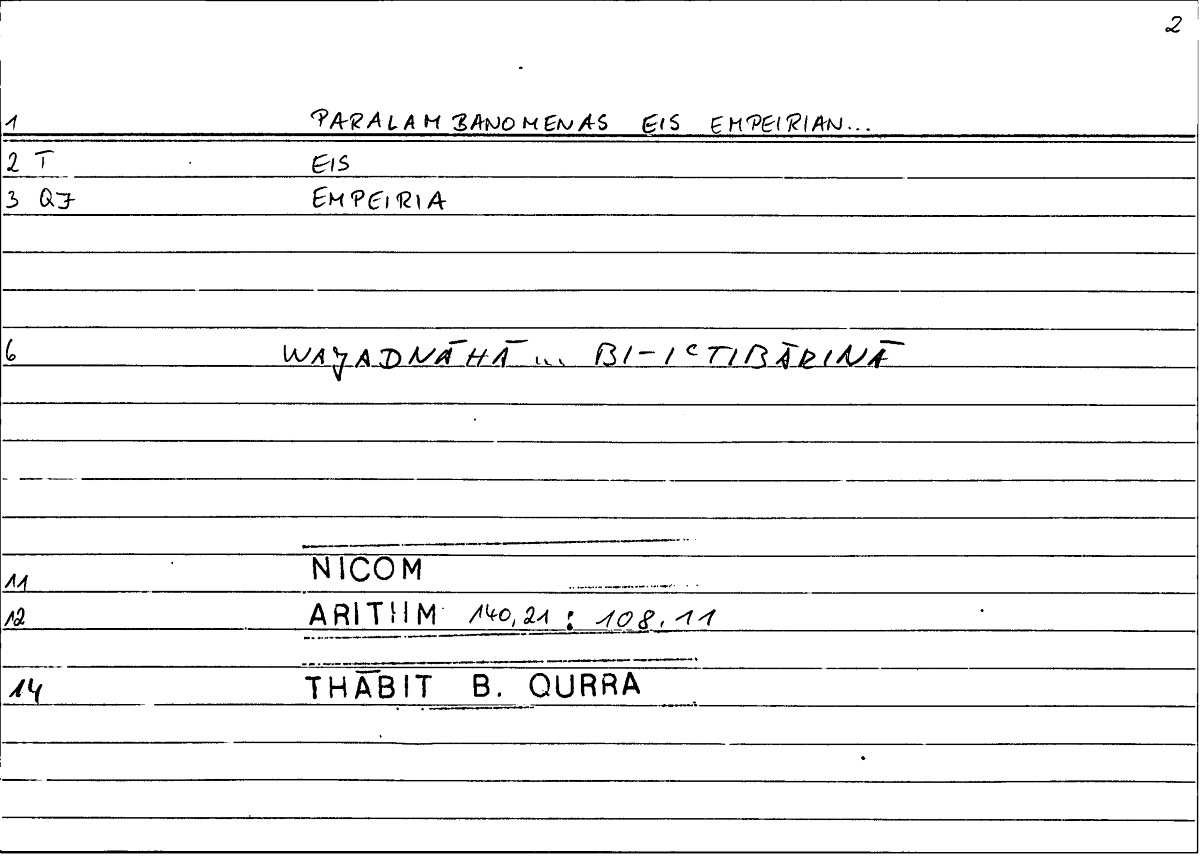 2
1 PARALAMBANOMENAS EIS EMPEIRIAN...
2 T EIS
3 QJ EMPEIRIA
6 WAJADNĀHĀ ... BI-IᶜTIBĀRINĀ
11 NICOM
12 ARITHM 140,21 : 108.11
14 THĀBIT B. QURRA